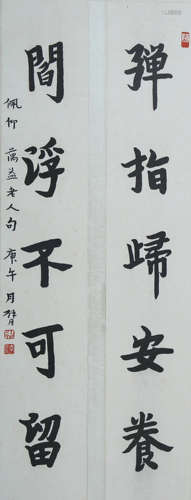 彈指歸安養
閻浮不可留
佩仰 蕅益老人句 庚午 月臂